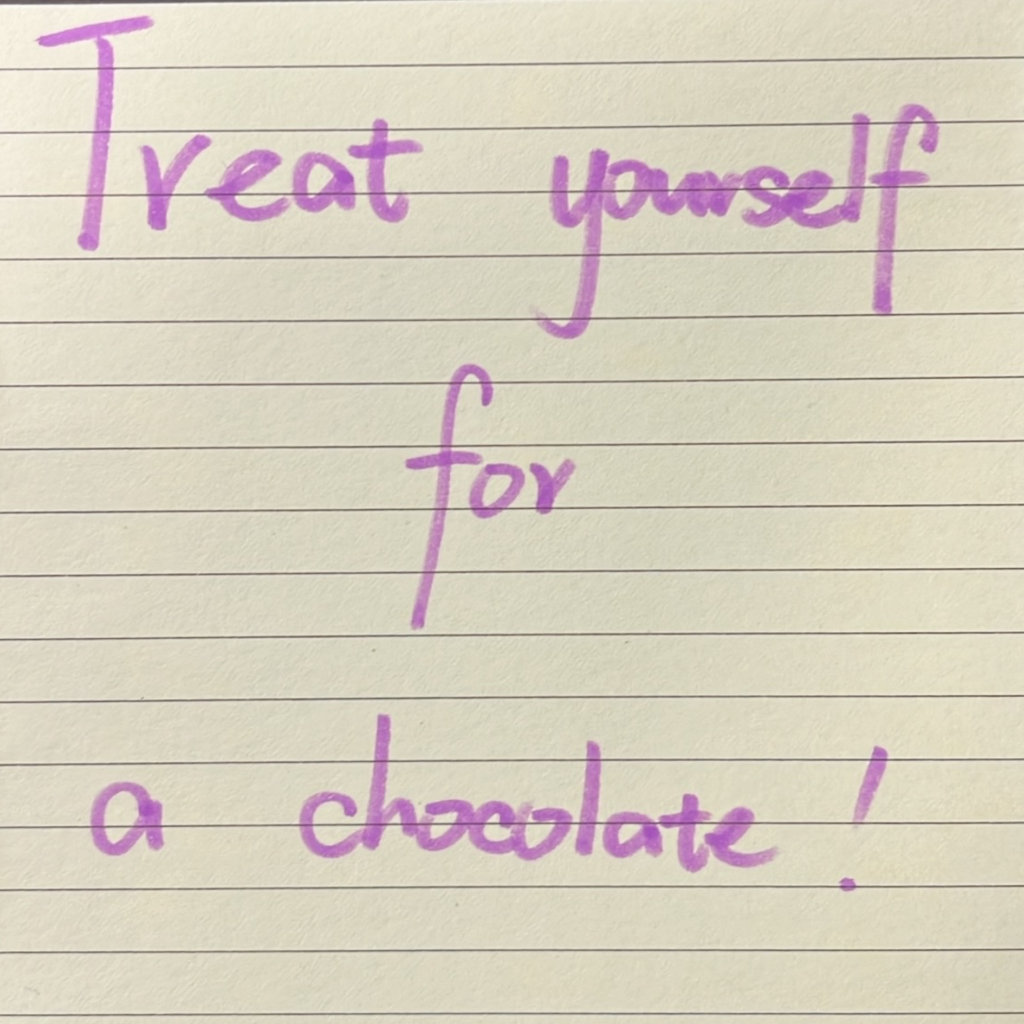 Treat yourself
for
a chocolate!